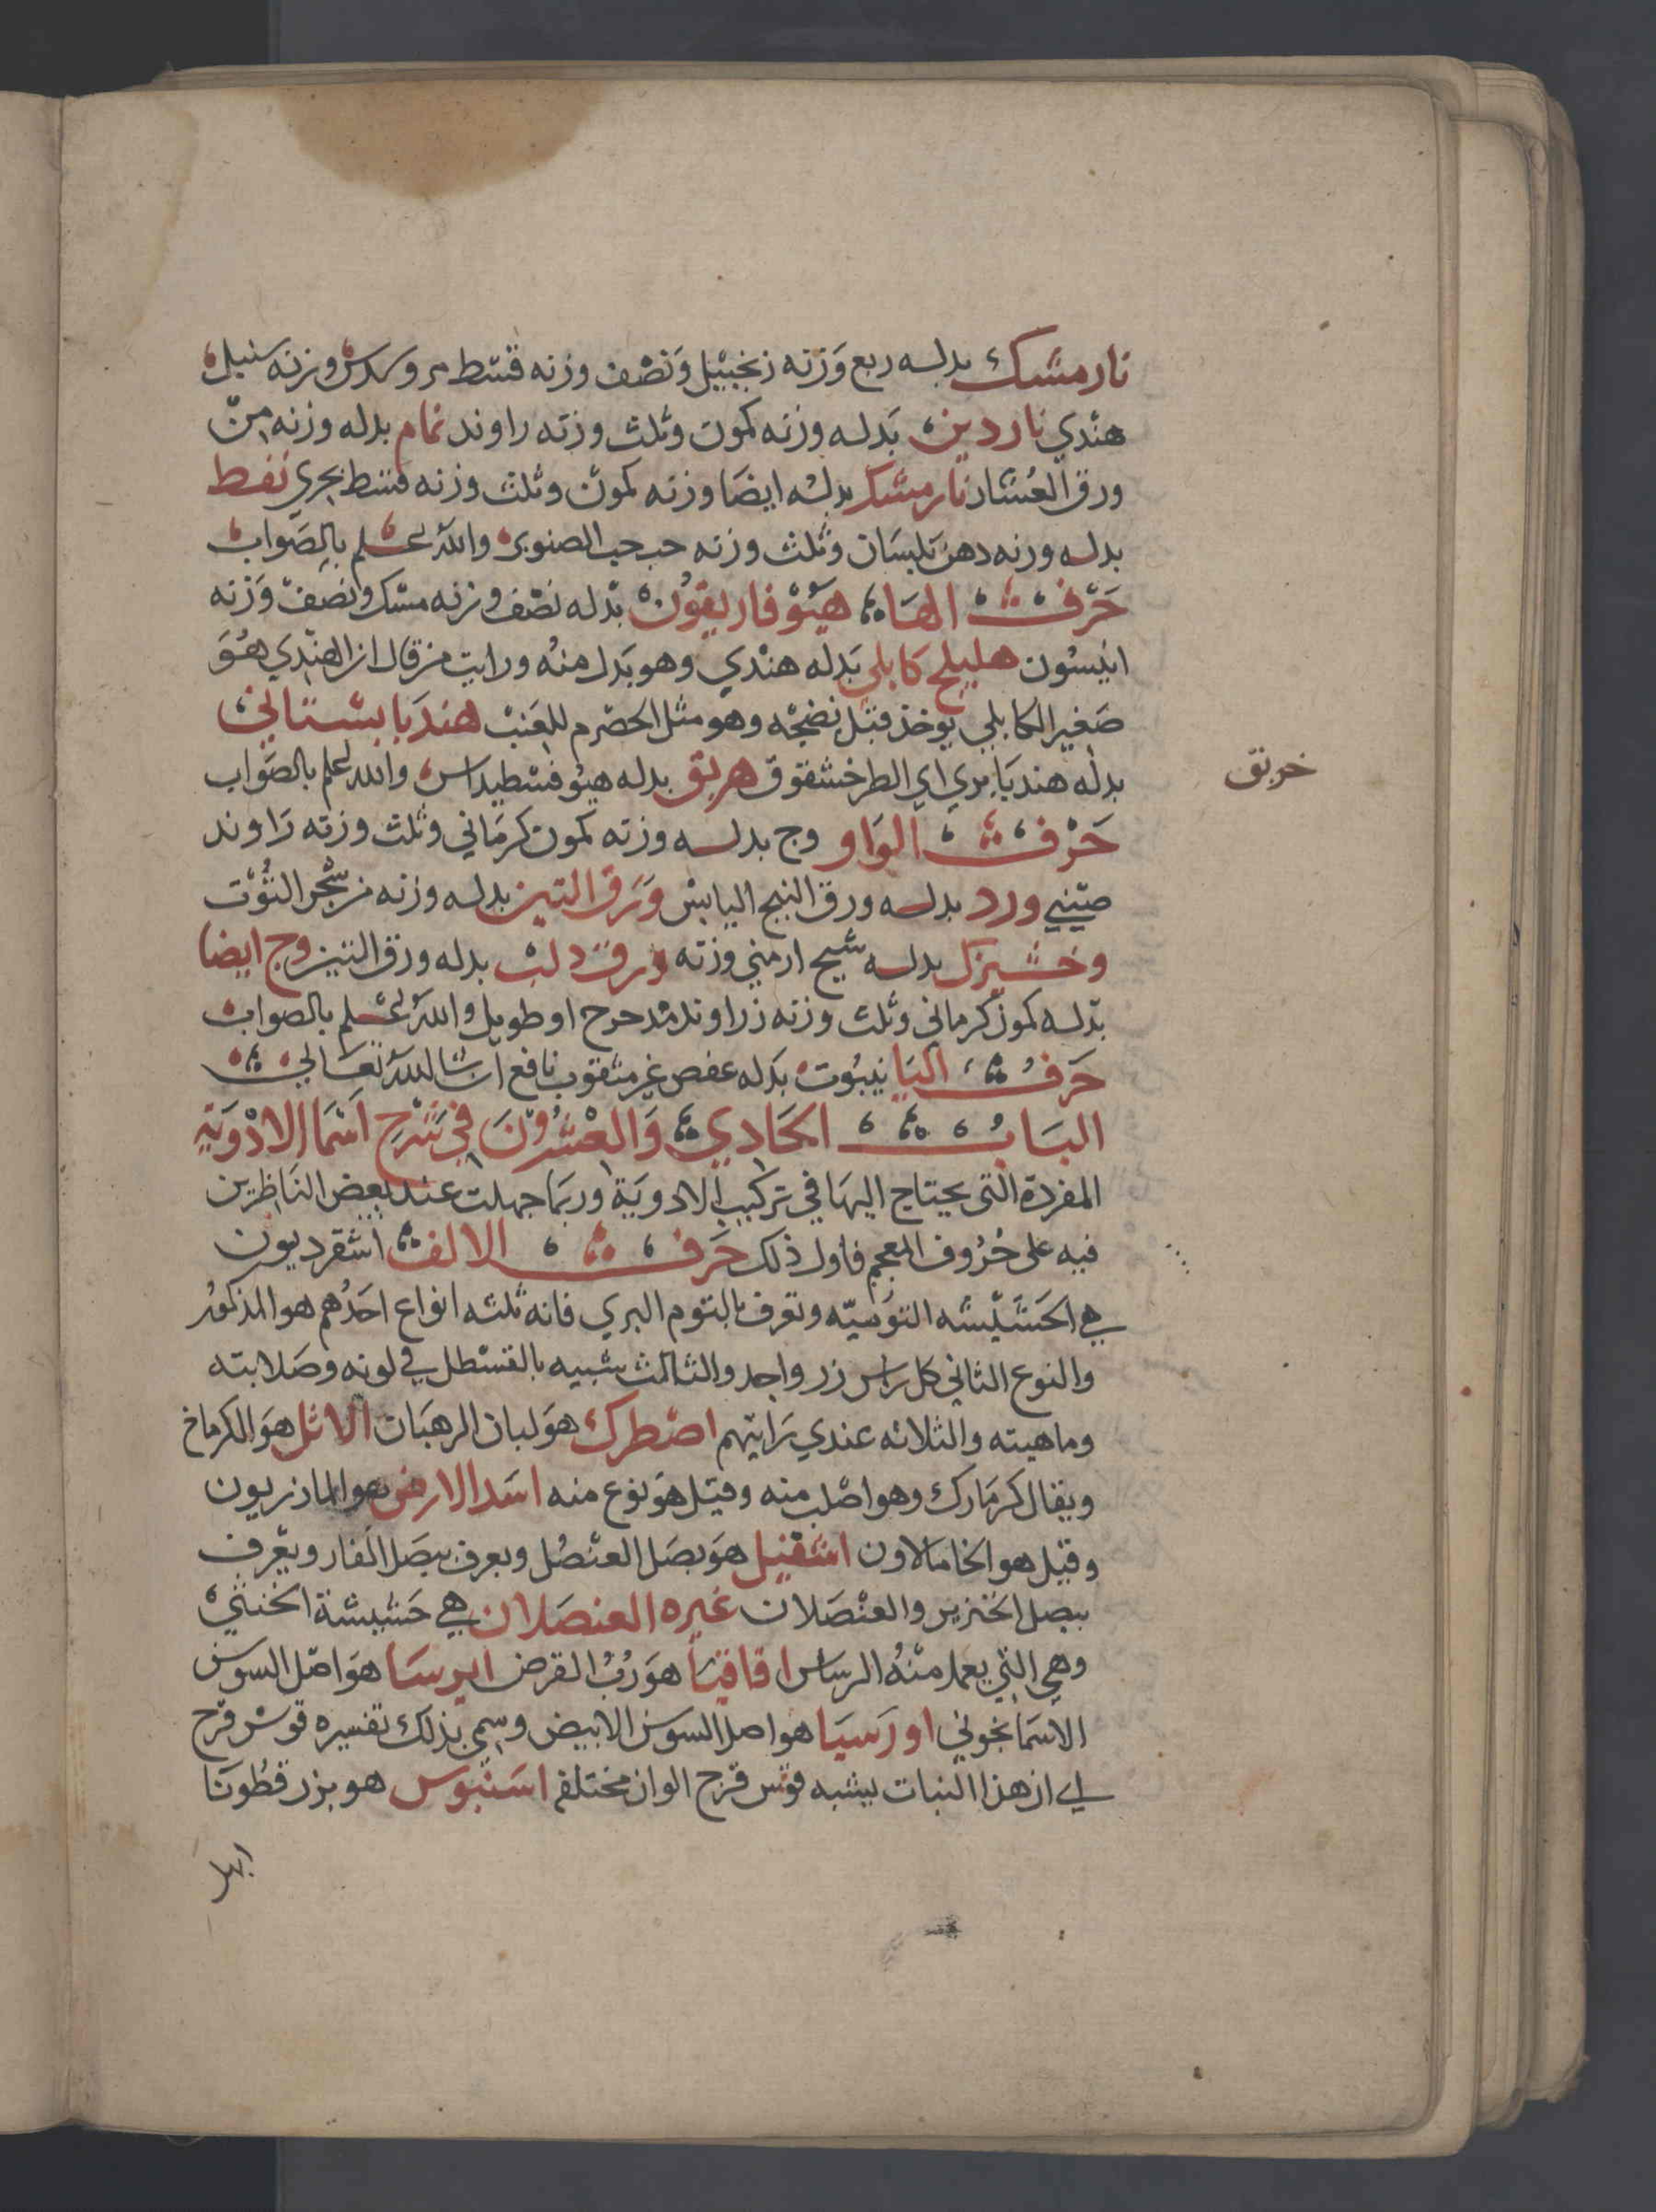 نارمشك بدله ربع وزنه زنجبيل ونصف وزنه قسط مر وسدس وزنه سنبل
هندي ناردين بدله وزنه كمون وثلث وزنه راوند نمام بدله وزنه من
ورق العشار نارمشك بدله ايضا وزنه كمون وثلث وزنه قسط بحري نفط
بدله وزنه دهن بلسان وثلث وزنه حب حب الصنوبر والله اعلم بالصواب
حرف الهاء هيوفاريقون بدله نصف وزنه مسك ونصف وزنه
انيسون هليلج كابلي بدله هندي وهو بدل منه ورايت من قال ان الهندي هو
صغير الكابلي يوخذ قبل نضجه وهو مثل الحصرم للعنب هندبا بستاني
بدله هندبا بري اي الطرخشقوق هربق بدله هيوفسطيداس والله اعلم بالصواب
خربق
حرف الواو وج بدله وزنه كمون كرماني وثلث وزنه راوند
صيني ورد بدله ورق البنج اليابس ورق التين بدله وزنه من شجر التوت
وخشيزك بدله شيح ارمني وزنه ورق دلب بدله ورق التين وج ايضا
بدله كمون كرماني وثلث وزنه زراوند مدحرح او طويل والله اعلم بالصواب
حرف اليا ينبوت بدله عفص غير مثقوب نافع ان شا الله تعالى
الباب الحادي والعشرون في شرح اسما الادوية
المفردة التي يحتاج اليها في تركيب الادوية وربما جهلت عند بعض الناظرين
فيه على حروف المعجم فاول ذلك حرف الالف اشقرديون
هي الحشيشه التوميه وتعرف بالتوم البري فانه ثلثه انواع احدهم هو المذكور
والنوع الثاني كل راس زر واحد والثالث شبيه بالقسطل في لونه وصلابته
وماهيته والثلاثه عندي رايتهم اصطرك هو لبان الرهبان الاثل هو الكرماخ
ويقال كرمارك وهو اصلب منه وقيل هو نوع منه اسد الارض هو المازريون
وقيل هو الخامالاون اشقيل هو بصل العنصل ويعرف ببصل الفار ويعرف
ببصل الخنزير والعنصلان غيره العنصلان هي حشيشة الخنثى
وهي التي يعمل منه الرساس اقاقيا هو رب القرض ايرسا هو اصل السوسن
الاسمانجوني اورسيا هو اصل السوسن الابيض وسمي بذلك تفسيره قوس قزح
اي ان هذا النبات يشبه قوس قزح الوان مختلفه اسنبوس هو بزر قطونا
ابهل